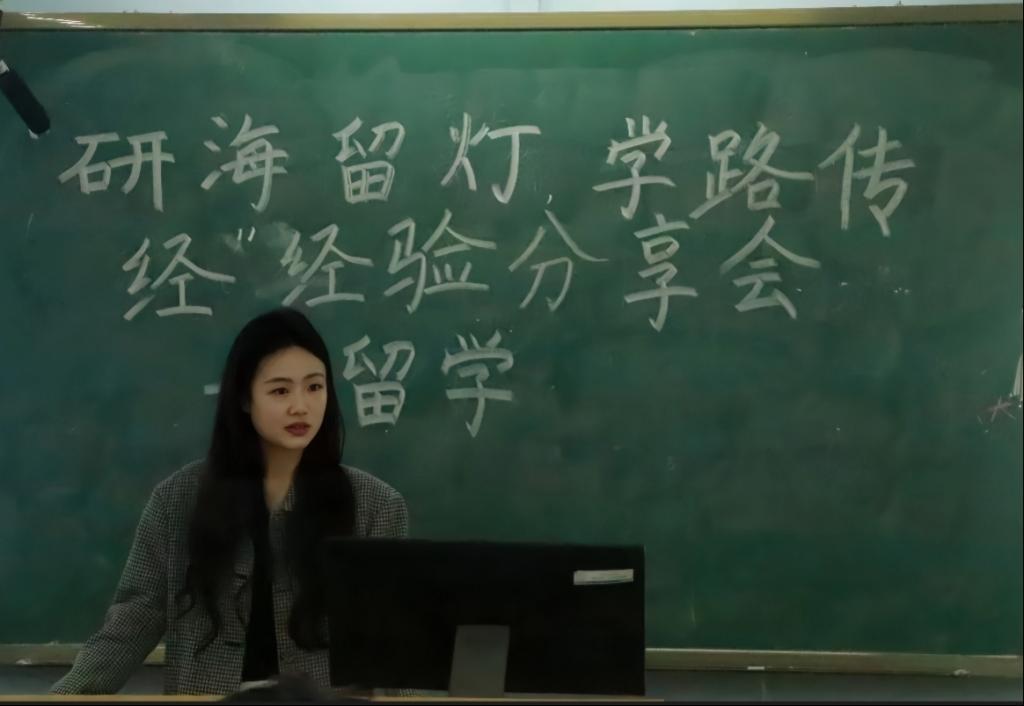 研海留灯 学路传
经"经验分享会
留学
大